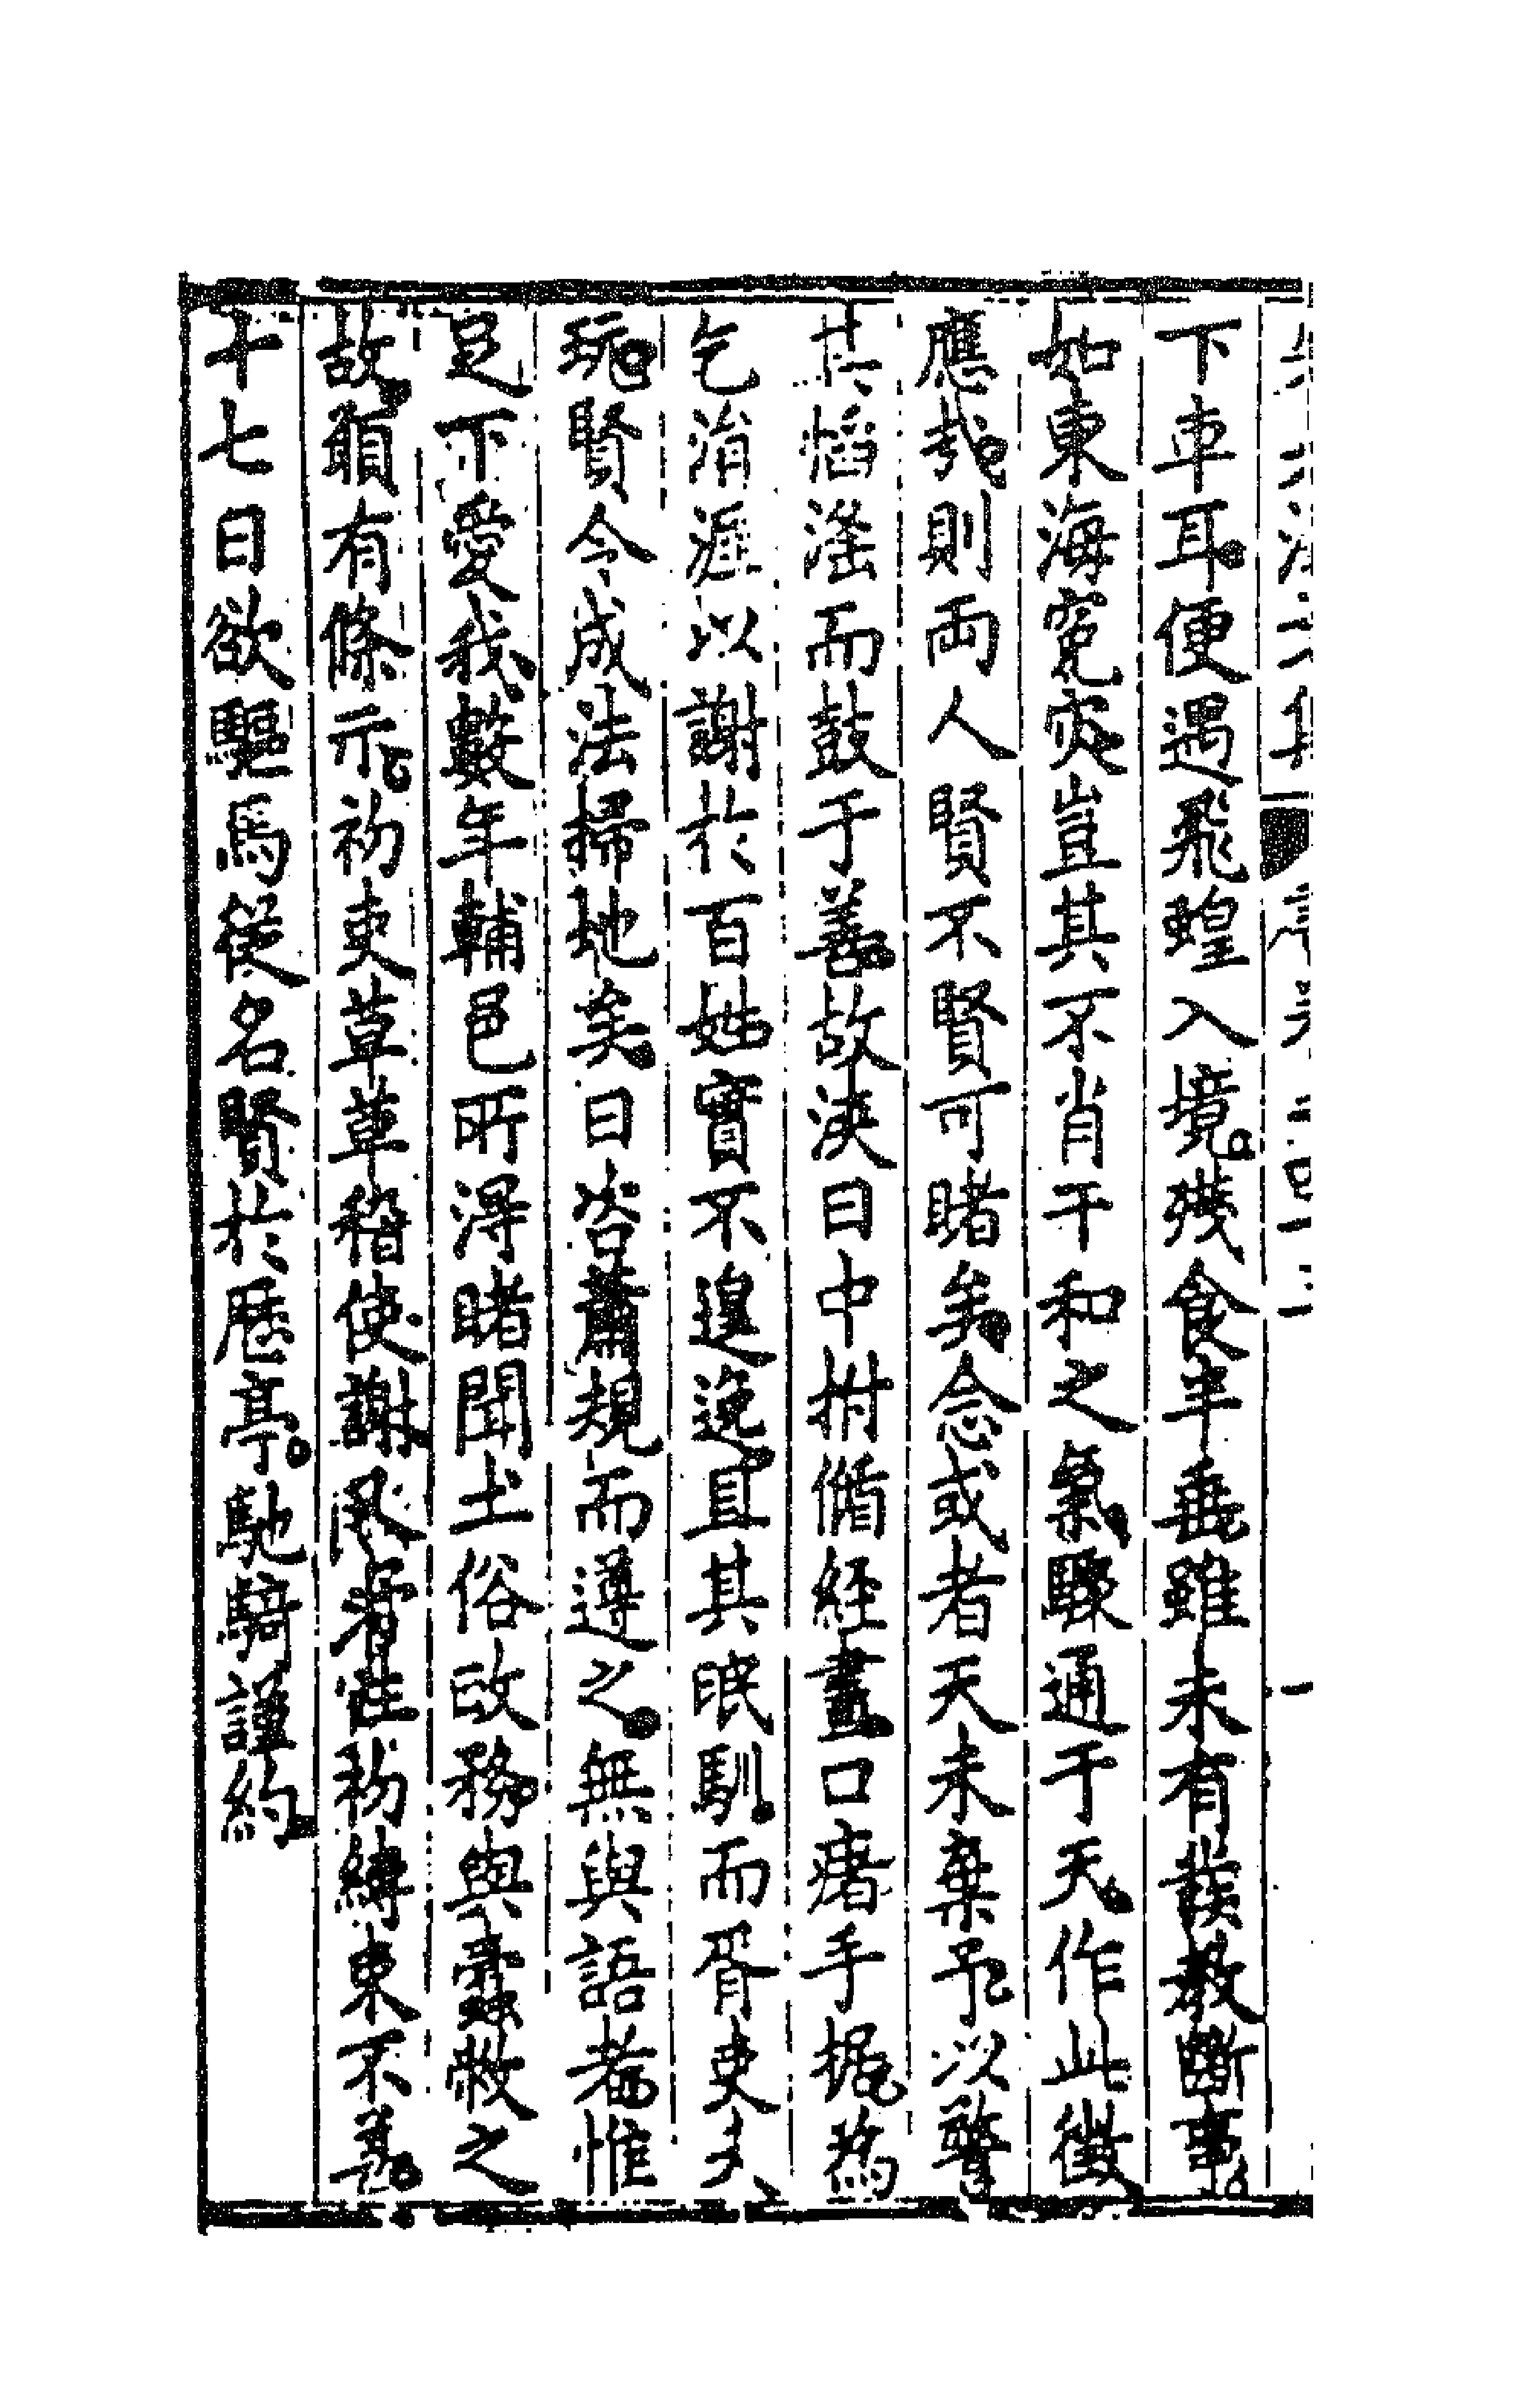 下車耳便遇飛蝗入境殘食羊垂雖未有蔟教斷事
如東海寃灾豈其不肖干和之氣驟通于天作此徵
應我則両人賢不賢可睹矣念或者天未棄予以警
其慆滛而鼓于善故決日中拊偱經畫口瘏手据為
乞涓涯以謝於百姓實不遑逸且其眠馴而胥吏
玩賢今成法掃地矣日咨蕭規而遵之無與語者惟
足下愛我數年輔邑所淂睹聞土俗改務與蠹敝之
故願有條示初吏草草稽使謝風胥性初縛束不
十七日欲驅馬從名賢於歷亭馳騎謹約